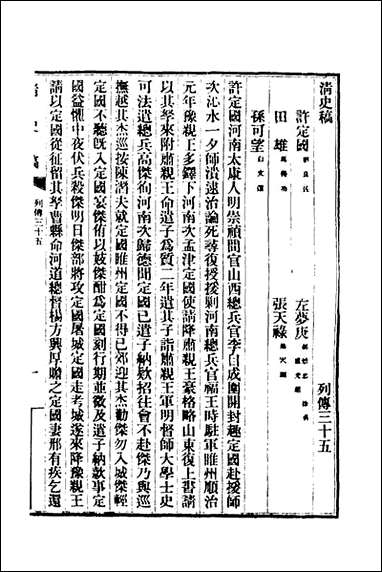 清史稿
列傳三十五
許定國
左夢庚
田雄
張天祿
孫可望
許定國河南太康人明崇禎間官山西總兵官李自成圍開封趣定國赴援師
次沁水一夕師潰速治論死尋復授援剿河南總兵官福王時駐軍睢州順治
元年豫親王多鐸下河南次孟津定國使請降肅親王豪格略山東復上書請
以其孥來附肅親王命遣子爲質二年遣其子詣肅親王軍明督師大學士史
可法遣總兵高傑徇河南次歸德聞定國已遣子納欵招往會不赴傑乃與巡
撫越其杰巡按陳潛夫就定國睢州定國不得已郊迎其杰勸傑勿入城傑輕
定國不聽既入定國宴傑侑以妓傑酣爲定國刻行期並微及遣子納欵事定
國益懼中夜伏兵殺傑明日傑部將攻定國屠城定國走考城遂來降豫親王
請以定國從征留其孥曹縣命河道總督楊方興厚贍之定國妻邢有疾乞還
列傳三十五
一